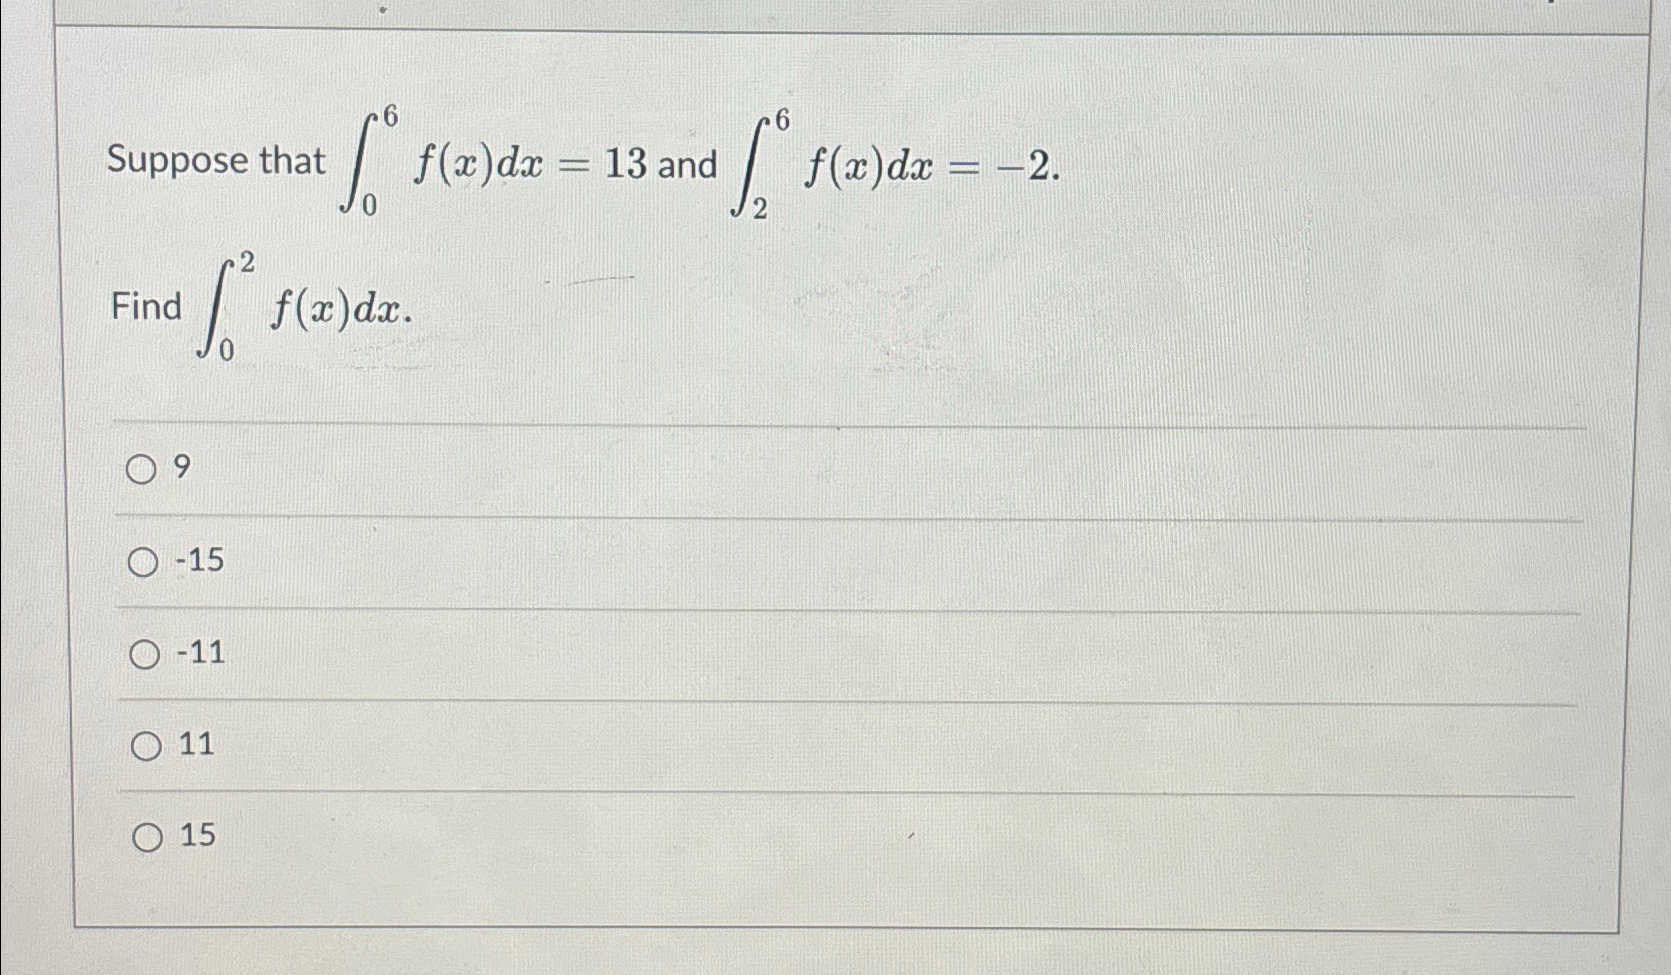 Suppose that ∫₀⁶ f(x)dx = 13 and ∫₂⁶ f(x)dx = −2.
Find ∫₀² f(x)dx.
9
-15
-11
11
15